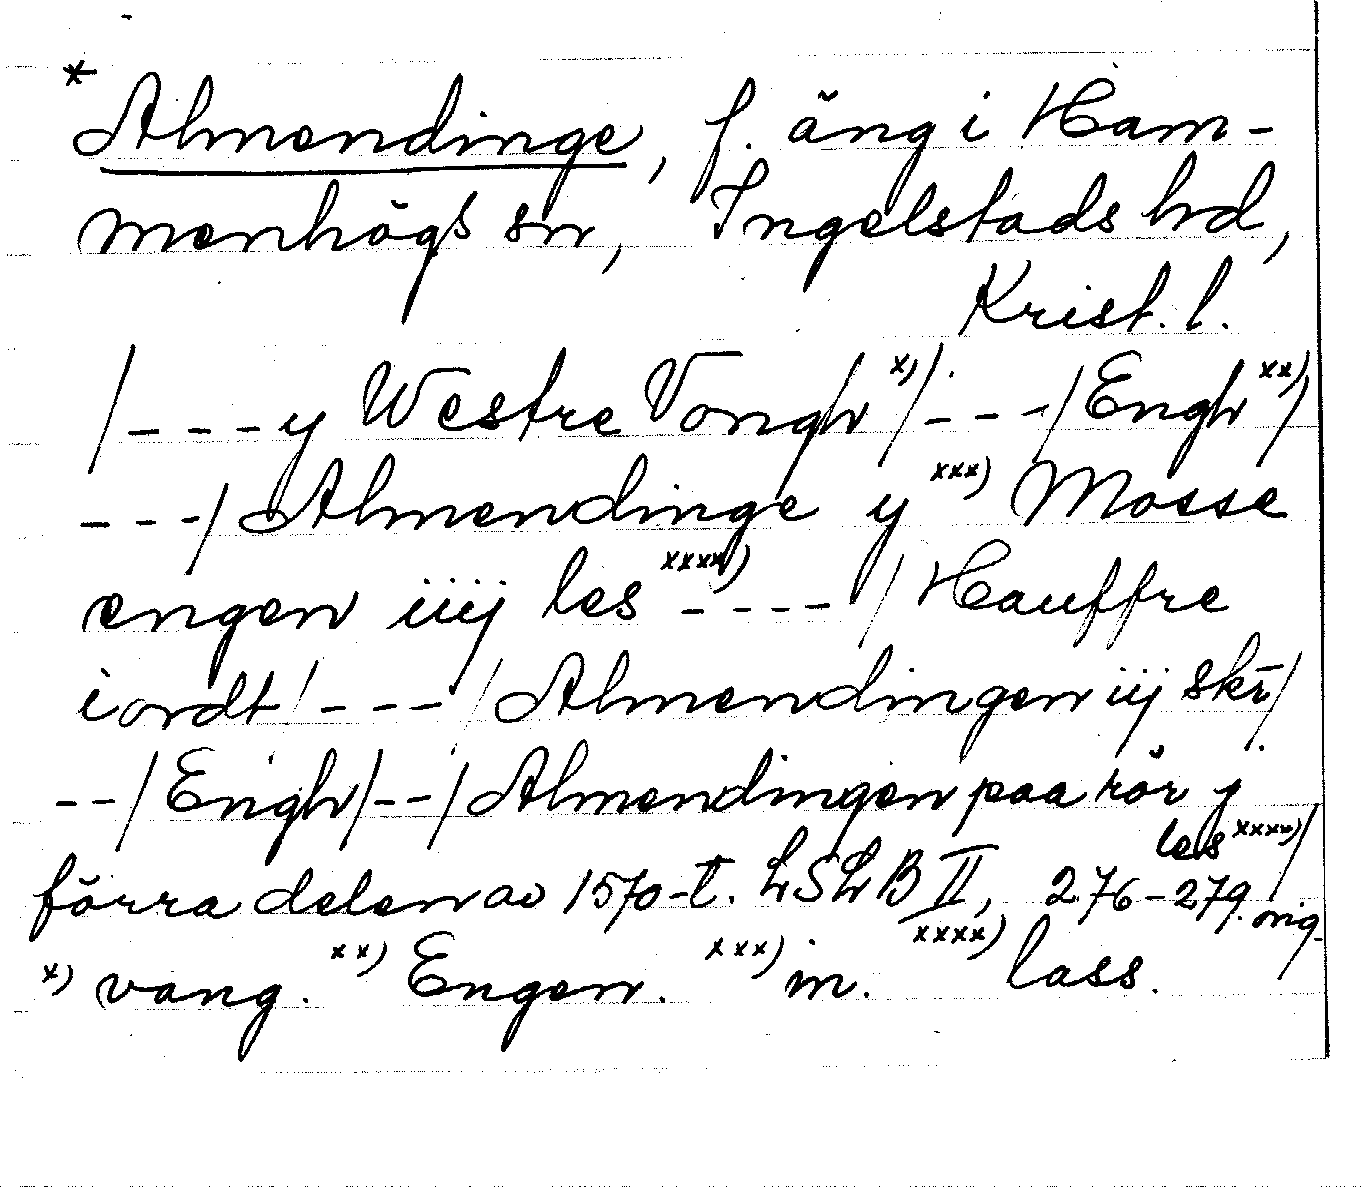 * Almendinge, f. äng i Ham-
menhögs sn, Ingelstads hd,
Krist. l.
/ - - - y Westre Vongh x) / - - - / Engh xx) /
- - - / Almendinge y xxx) Mosse
engen iiij les xxxx) - - - - / Hauffre
iordt / - - - / Almendingen iij skr /
- - / Engh / - - / Almendingen paa rör j
les xxxx) /
förra delen av 1570-t. LSLB II, 276-279. orig.
x) vang. xx) Engen. xxx) in. xxxx) lass.